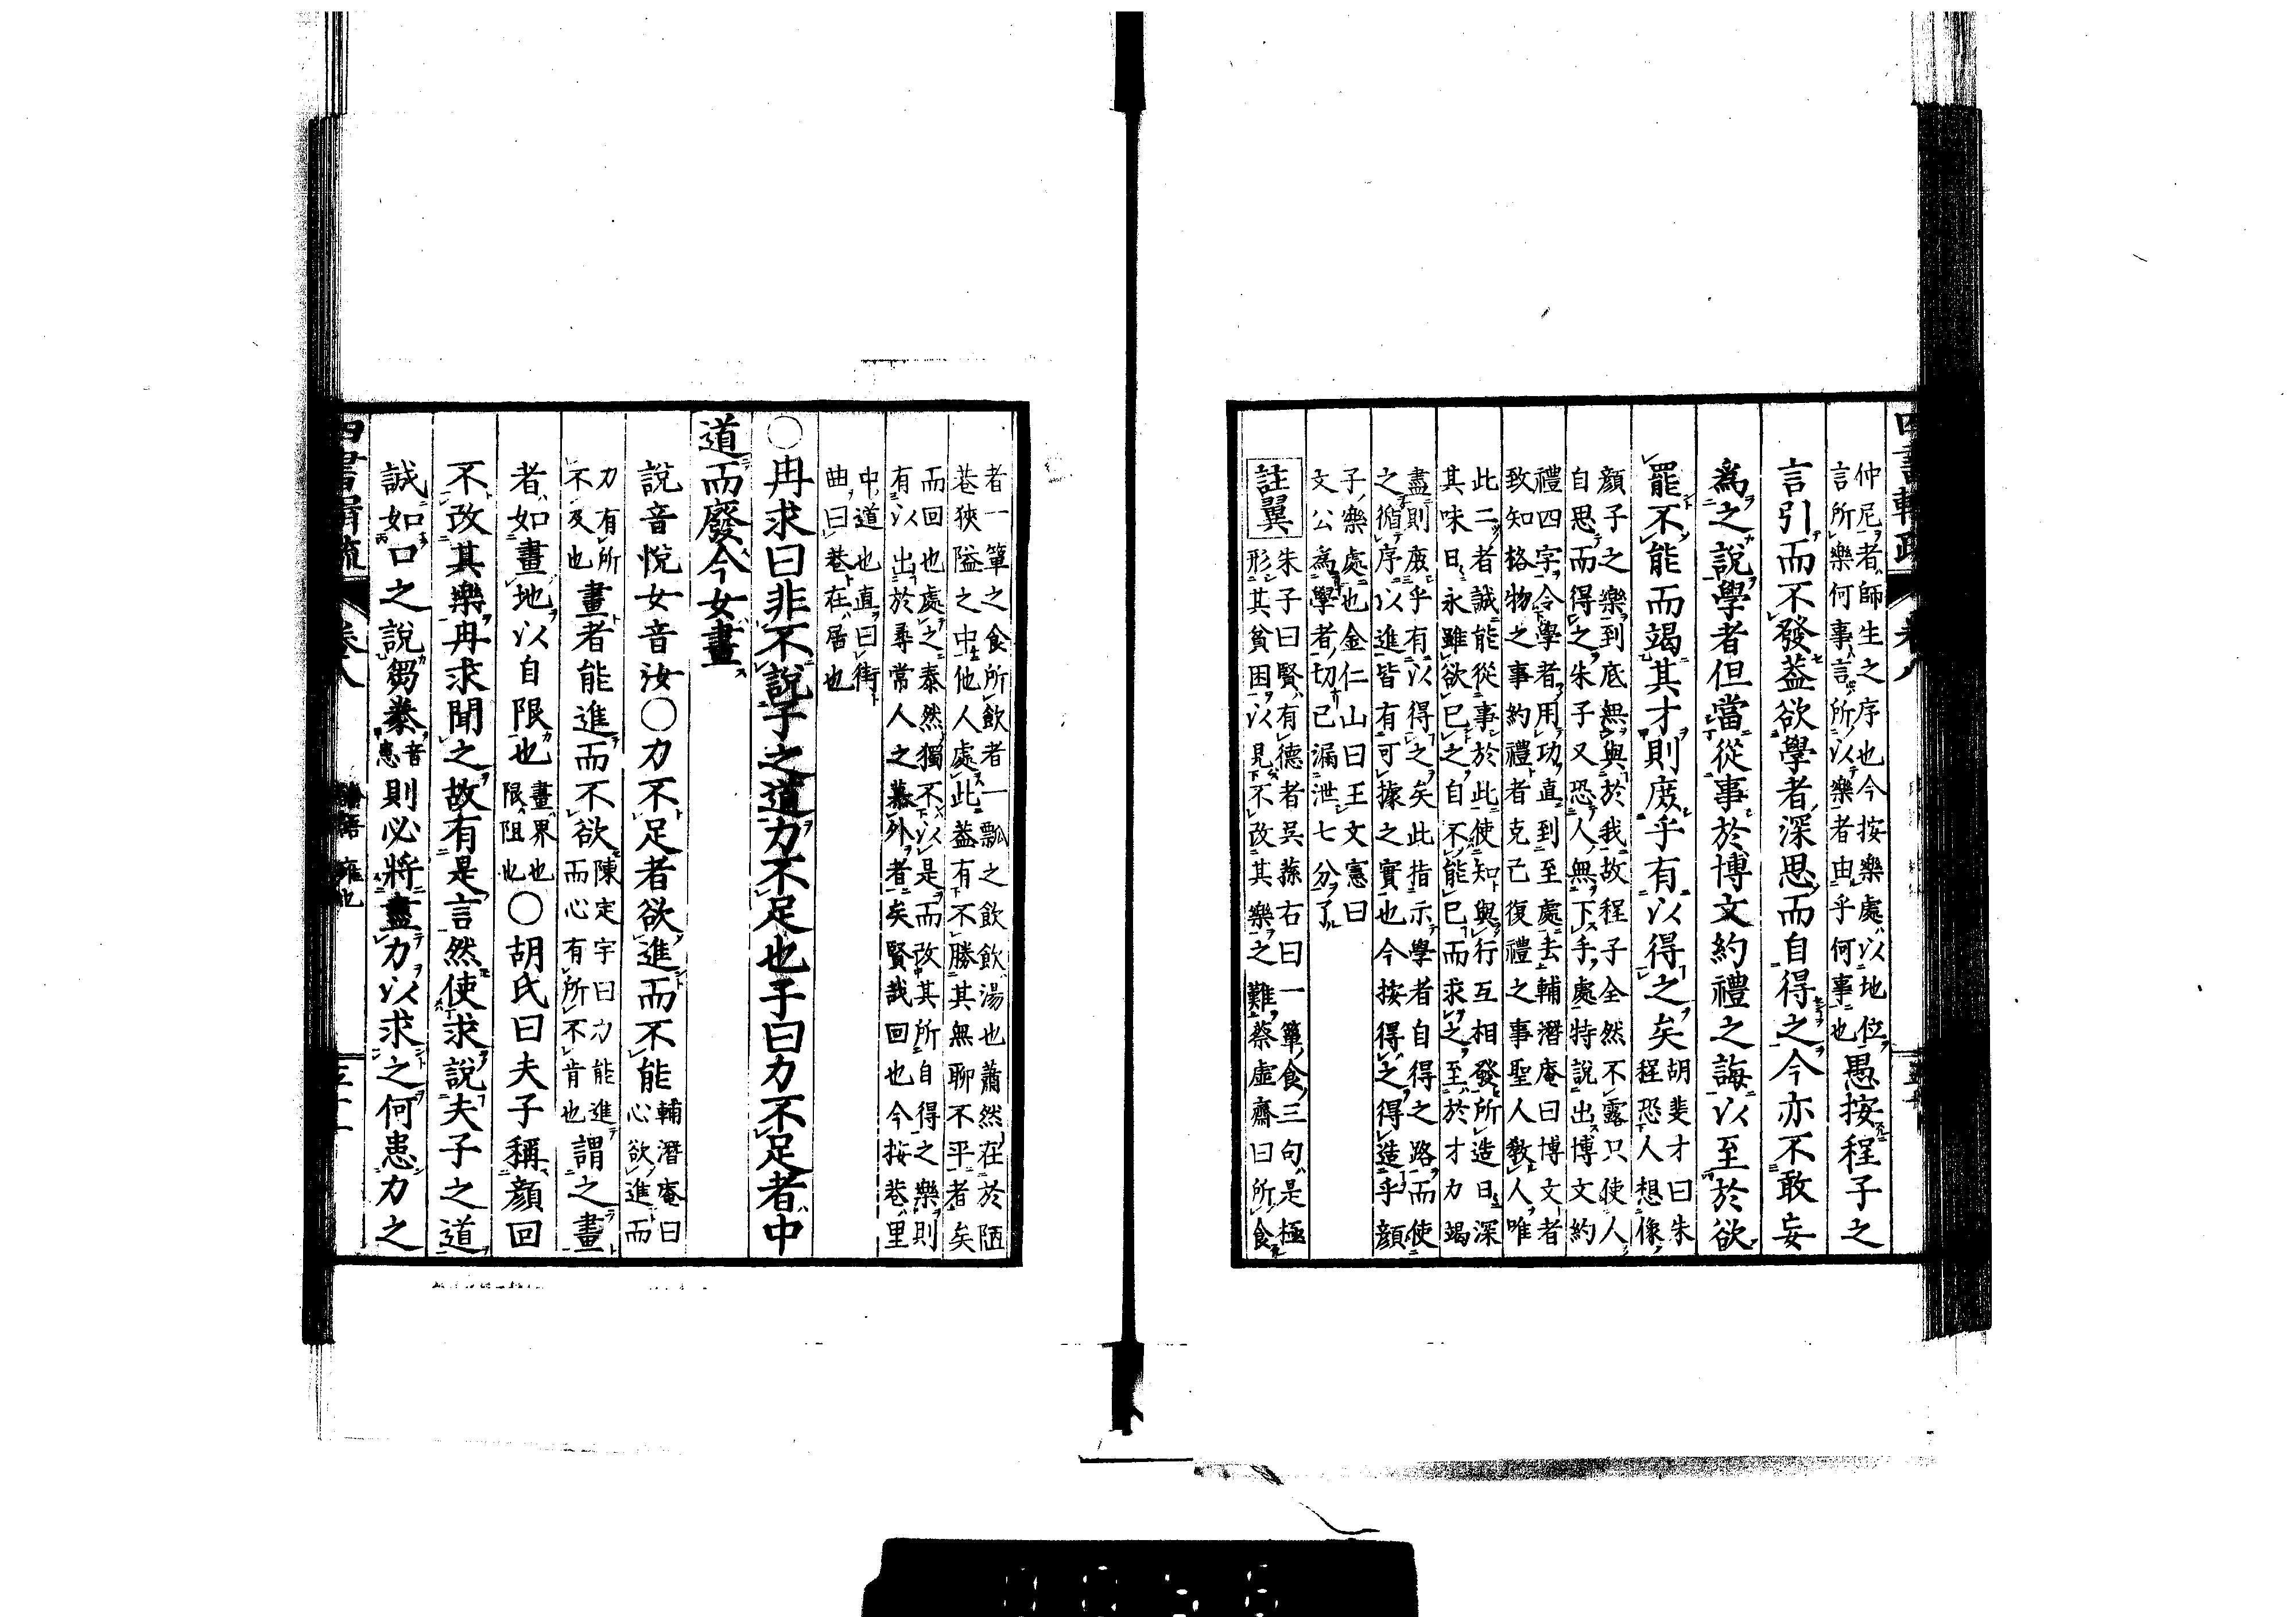 四書輯疏 卷八
仲尼者師生之序也今按樂處以地位
言所樂何事言所以樂者由乎何事也
愚按程子之
言引而不發蓋欲學者深思而自得之今亦不敢妄
為之說學者但當從事於博文約禮之誨以至於欲
罷不能而竭其才則庶乎有以得之矣
胡斐才曰朱
程恐人想像
顏子之樂到底無與於我故程子全然不露只使人
自思而得之朱子又恐人無下手處特說出博文約
禮四字令學者用功直到至處去輔潛庵曰博文者
致知格物之事約禮者克己復禮之事聖人教人唯
此二者誠能從事於此使知與行互相發所造日深
其味日永雖欲已之自不能已而求之至於才力竭
盡則庶乎有以得之矣此指示學者自得之路而使
之循序以進皆有可據之實也今按得之得造乎顏
子樂處也金仁山曰王文憲曰
文公為學者切已漏泄七分了
註翼
朱子曰賢有德者吳蓀右曰一簞食三句是極
形其貧困以見不改其樂之難蔡虛齋曰所食
者一簞之食所飲者一瓢之飲飲湯也蕭然在於陋
巷狹隘之中他人處此蓋有不勝其無聊不平者矣
而回也處之泰然獨不以是而改其所自得之樂則
有以出於尋常人之慕外者矣賢哉回也今按巷里
中道也直曰街
曲曰巷在居也
○冉求曰非不說子之道力不足也子曰力不足者中
道而廢今女畫
說音悅女音汝○力不足者欲進而不能
輔潛庵曰
心欲進而
力有所
不及也
畫者能進而不欲
陳定宇曰力能進
而心有所不肯也
謂之畫
者如畫地以自限也
畫界也
限阻也
○胡氏曰夫子稱顏回
不改其樂冉求聞之故有是言然使求說夫子之道
誠如口之說芻豢
音
患
則必將盡力以求之何患力之
四書輯疏 卷八 論語 雍也